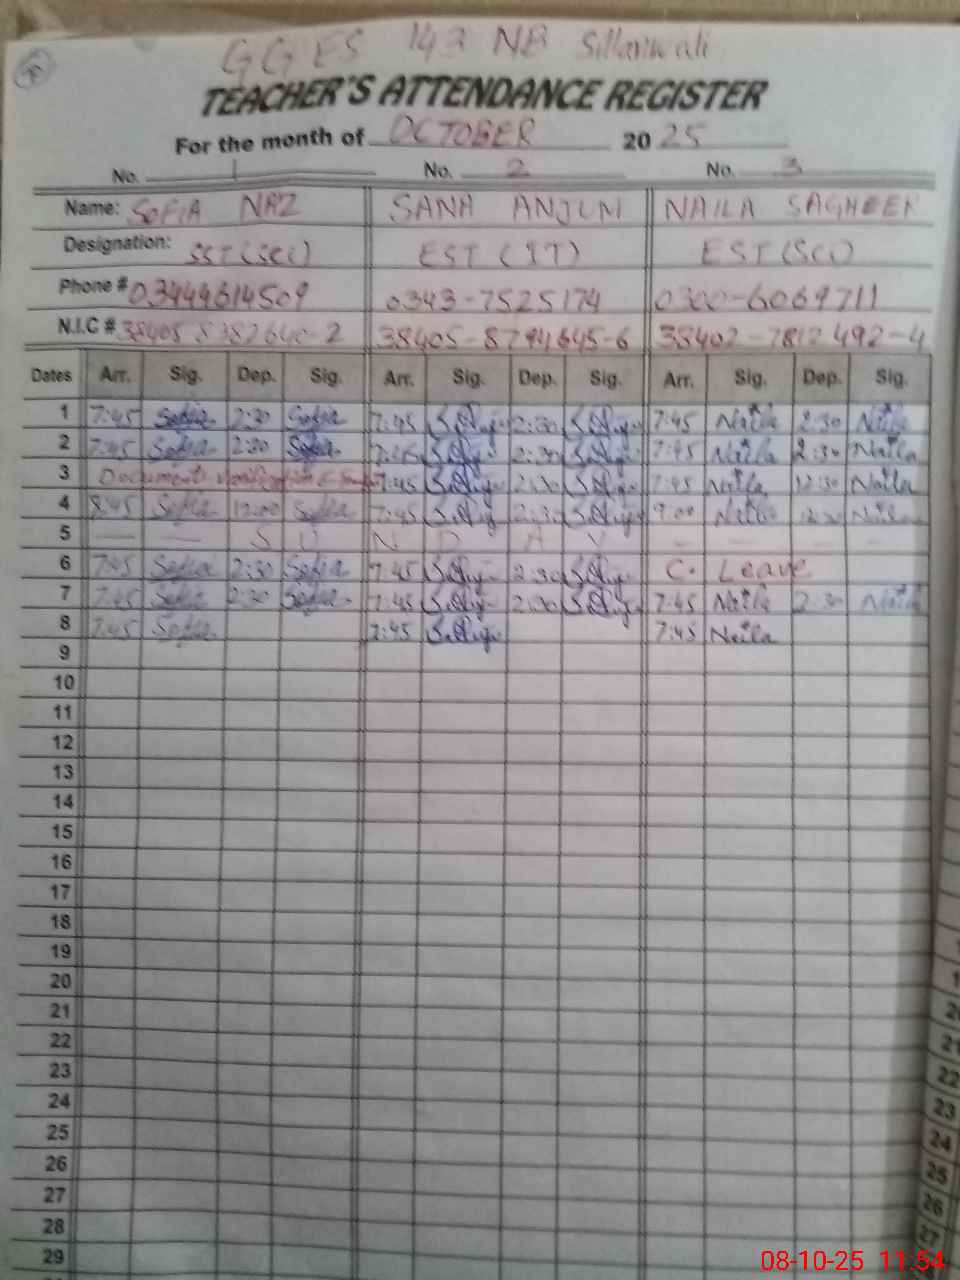 GGES 143 NB Sillanwali
TEACHER'S ATTENDANCE REGISTER
For the month of OCTOBER 2025
No. 1 No. 2 No. 3
Name: SOFIA NAZ SANA ANJUM NAILA SAGHEER
Designation: SST (SCI) EST (IT) EST (SCI)
Phone # 03444614509 0343-7525174 0300-6069711
N.I.C # 38405 8382640-2 38405-8794645-6 38402-7812492-4
Dates Arr. Sig. Dep. Sig. Arr. Sig. Dep. Sig. Arr. Sig. Dep. Sig.
1 7:45 Sofia 2:30 Sofia 7:45 2:30 7:45 Naila 2:30 Naila
2 7:45 Sofia 2:30 Sofia 2:30 7:45 Naila 2:30 Naila
3 Documents verification 7:45 7:45 Naila 12:30 Naila
4 8:45 Sofia 12:00 Sofia 7:45 9:00 Naila Naila
5 — — S U N D A Y — — — —
6 7:45 Sofia 2:30 Sofia 7:45 2:30 C. Leave
7 7:45 Sofia 2:30 Sofia 7:45 2:30 7:45 Naila 2:30 Naila
8 7:45 Sofia 7:45 7:45 Naila
9
10
11
12
13
14
15
16
17
18
19
20
21
22
23
24
25
26
27
28
29
08-10-25 11:54